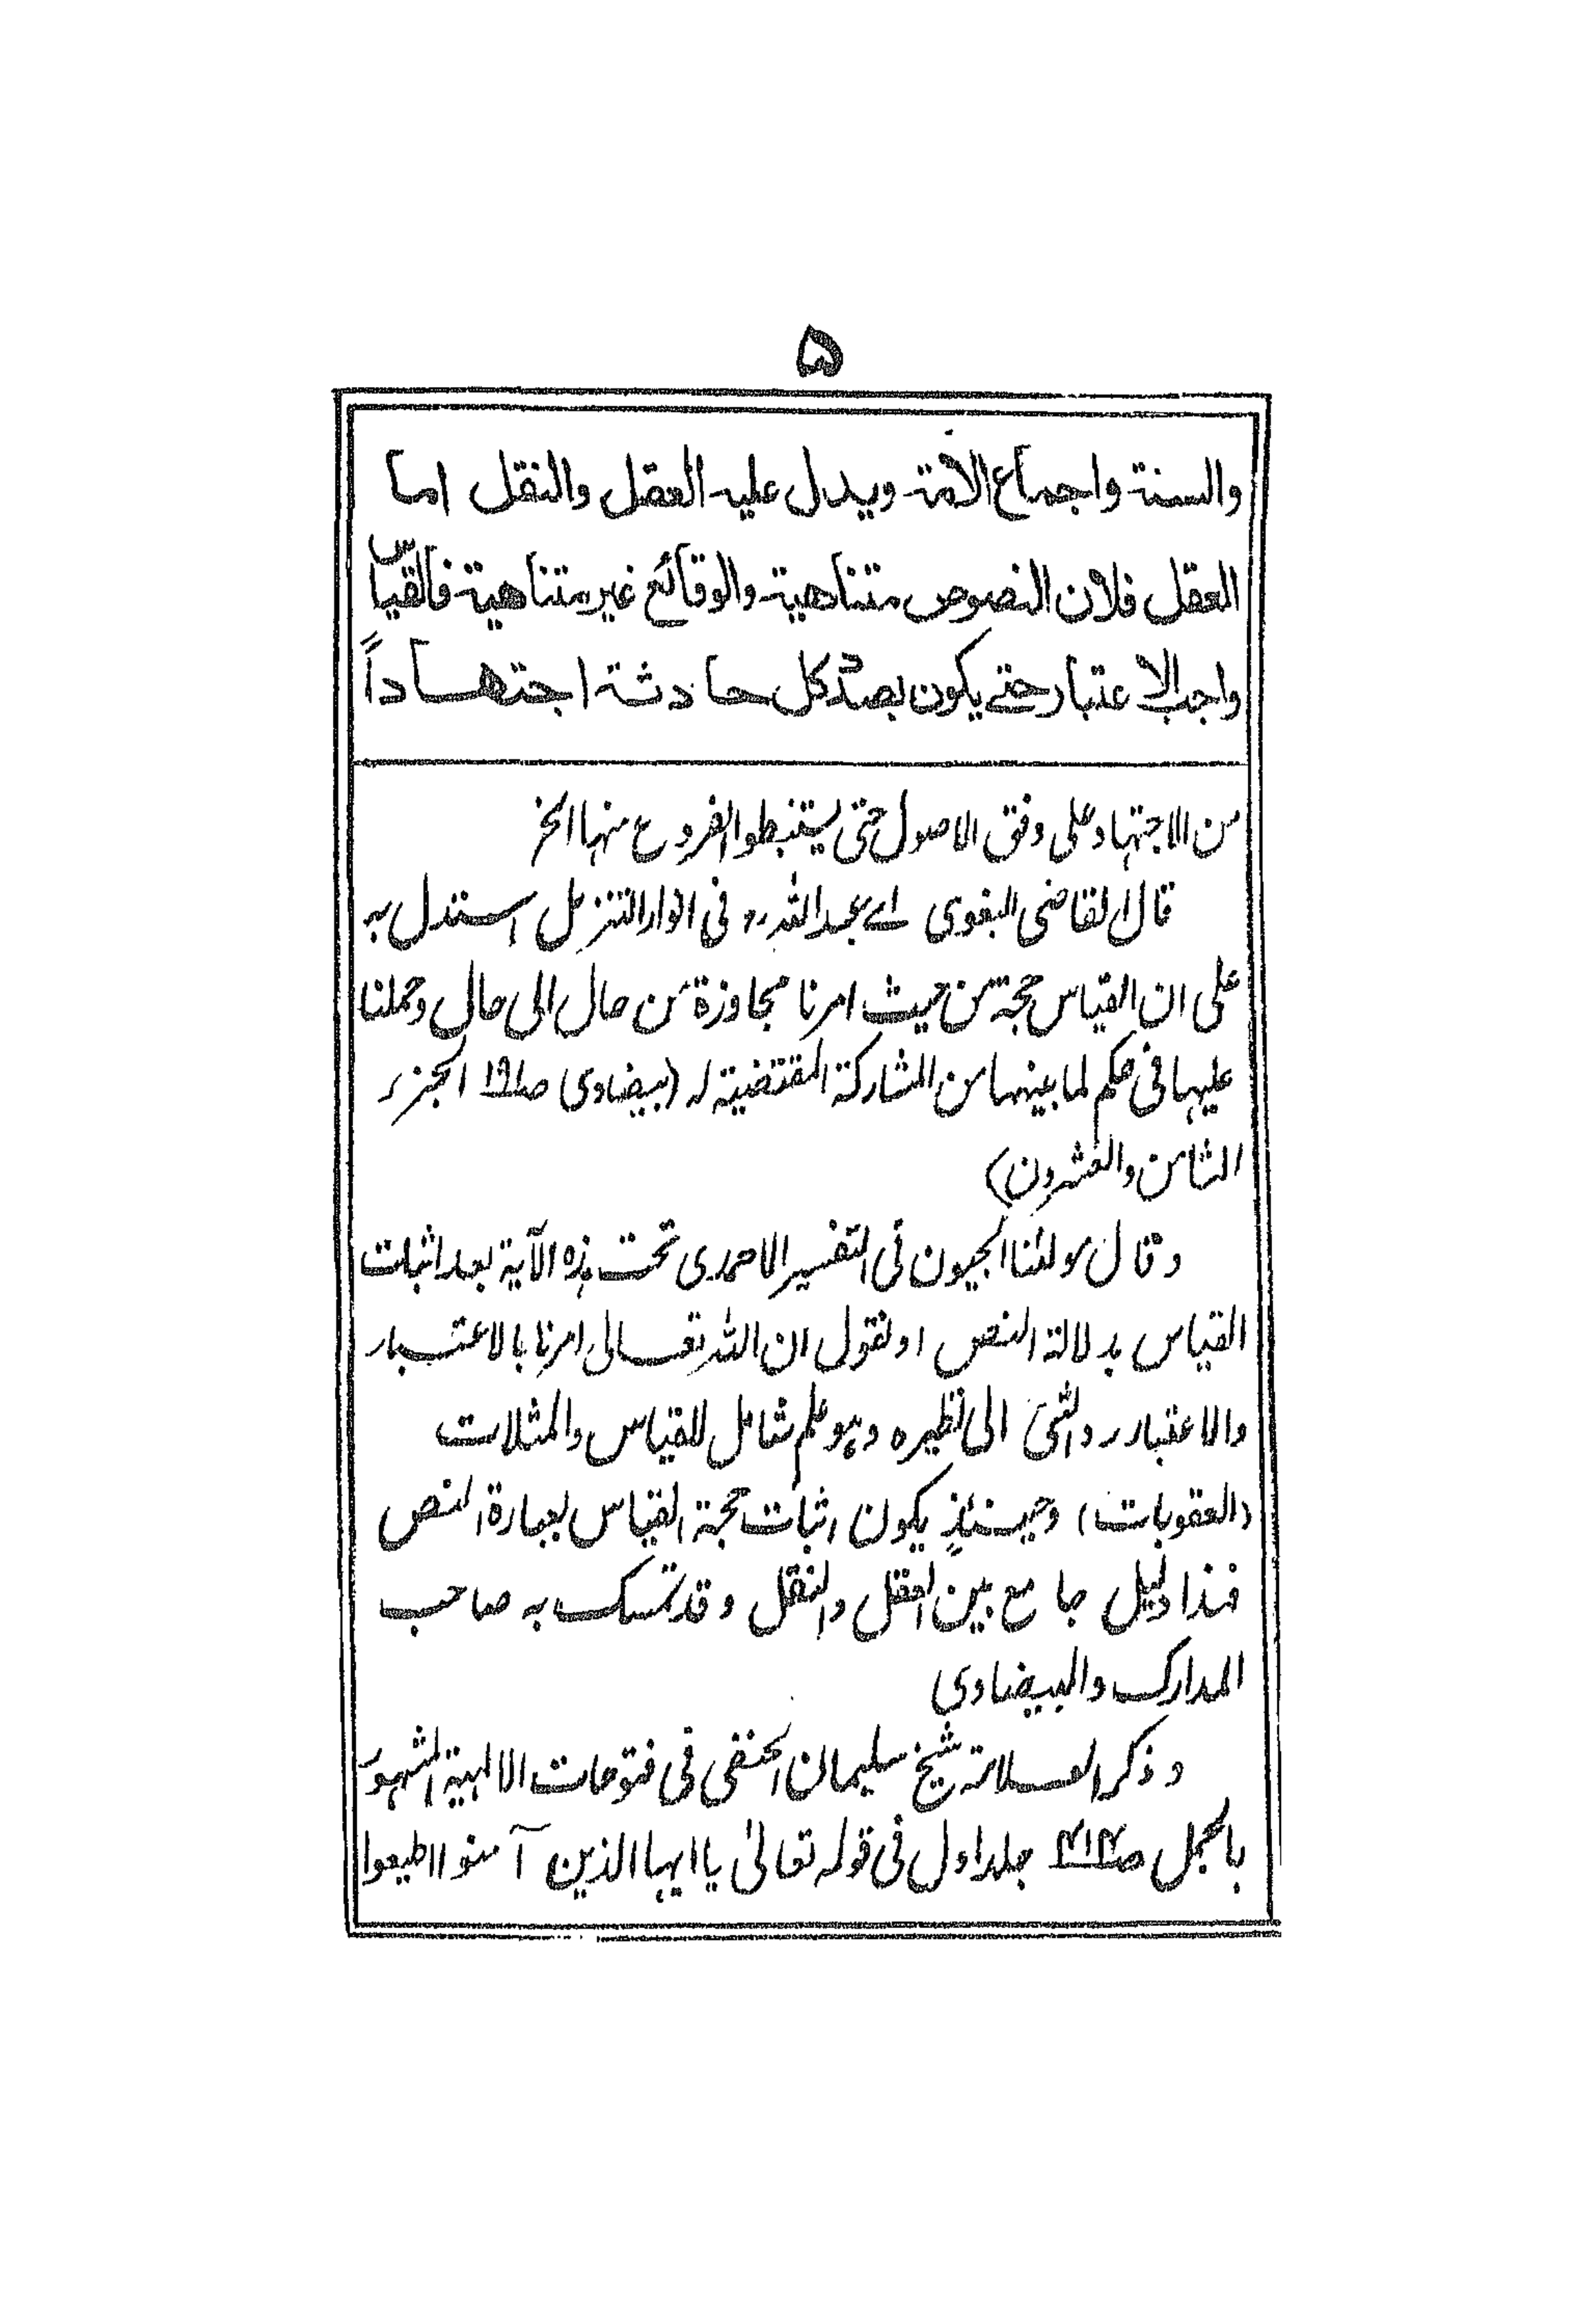 ۵
والسنة واجماع الامة ويدل عليه العقل والنقل اما
العقل فلان النصوص متناهية والوقائع غير متناهية فالقياس
واجب الاعتبار حتے يكون بصدد كل حادثة اجتهاداً
من الاجتہاد على وفق الاصول حتى يستنبطوا الفروع منہا الخ
قال القاضى البغوى اے عبد اللہ رو فى انوار التنزيل استدل به
على ان القياس حجة من حيث امرنا مجاوزة من حال الى حال وحملنا
عليہا فى حكم لما بينهما من المشاركة المقتضية لہ (بيضاوى صـ١٩١ الجزء
الثامن والعشرون)
وقال مولٰنا الجيون فى التفسير الاحمدى تحت ہذه الآية بعد اثبات
القياس بدلالة النص او نقول ان اللہ تعالىٰ امرنا بالاعتبار
والاعتبار رد الشئ الى نظيره وہو علم شامل للقياس والمثلات
(العقوبات) وحينئذٍ يكون اثبات حجة القياس بعبارة النص
فہذا دليل جامع بين العقل والنقل وقد تمسك به صاحب
المدارك والبيضاوى
وذكر العلامة شيخ سليمان الحنفى فى فتوحات الالہية المشہور
بالجمل صـ۴١۴ جلد اول فى قولہ تعالىٰ يا ايہا الذين آمنوا اطيعوا